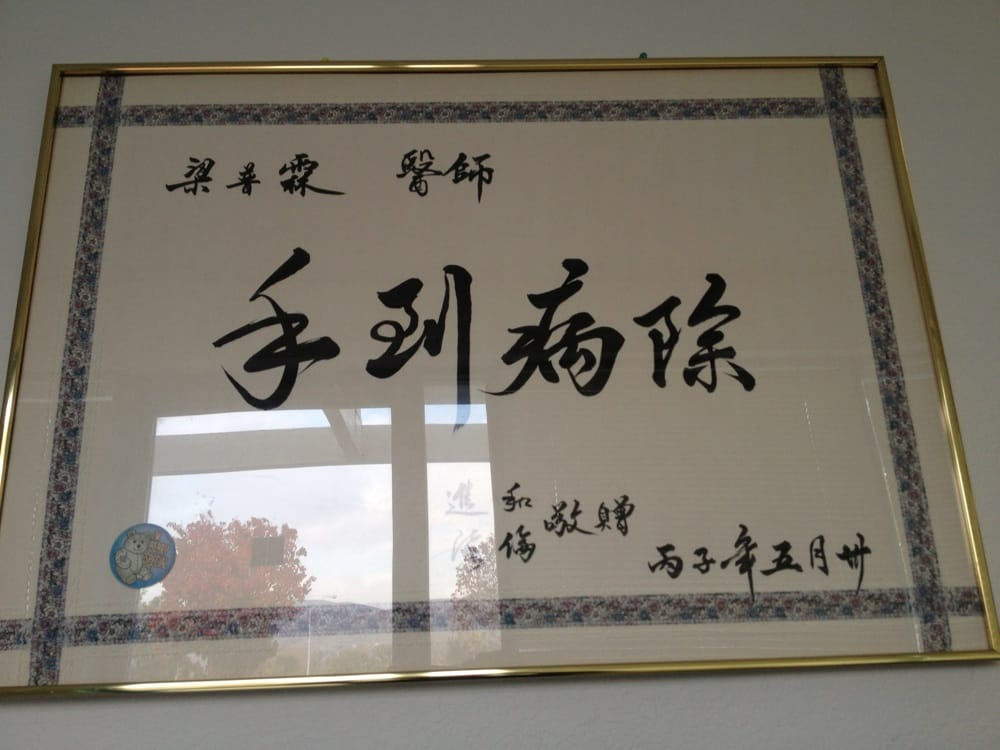 梁普霖 醫師
手到病除
進
和倫 敬贈
丙子年五月卅